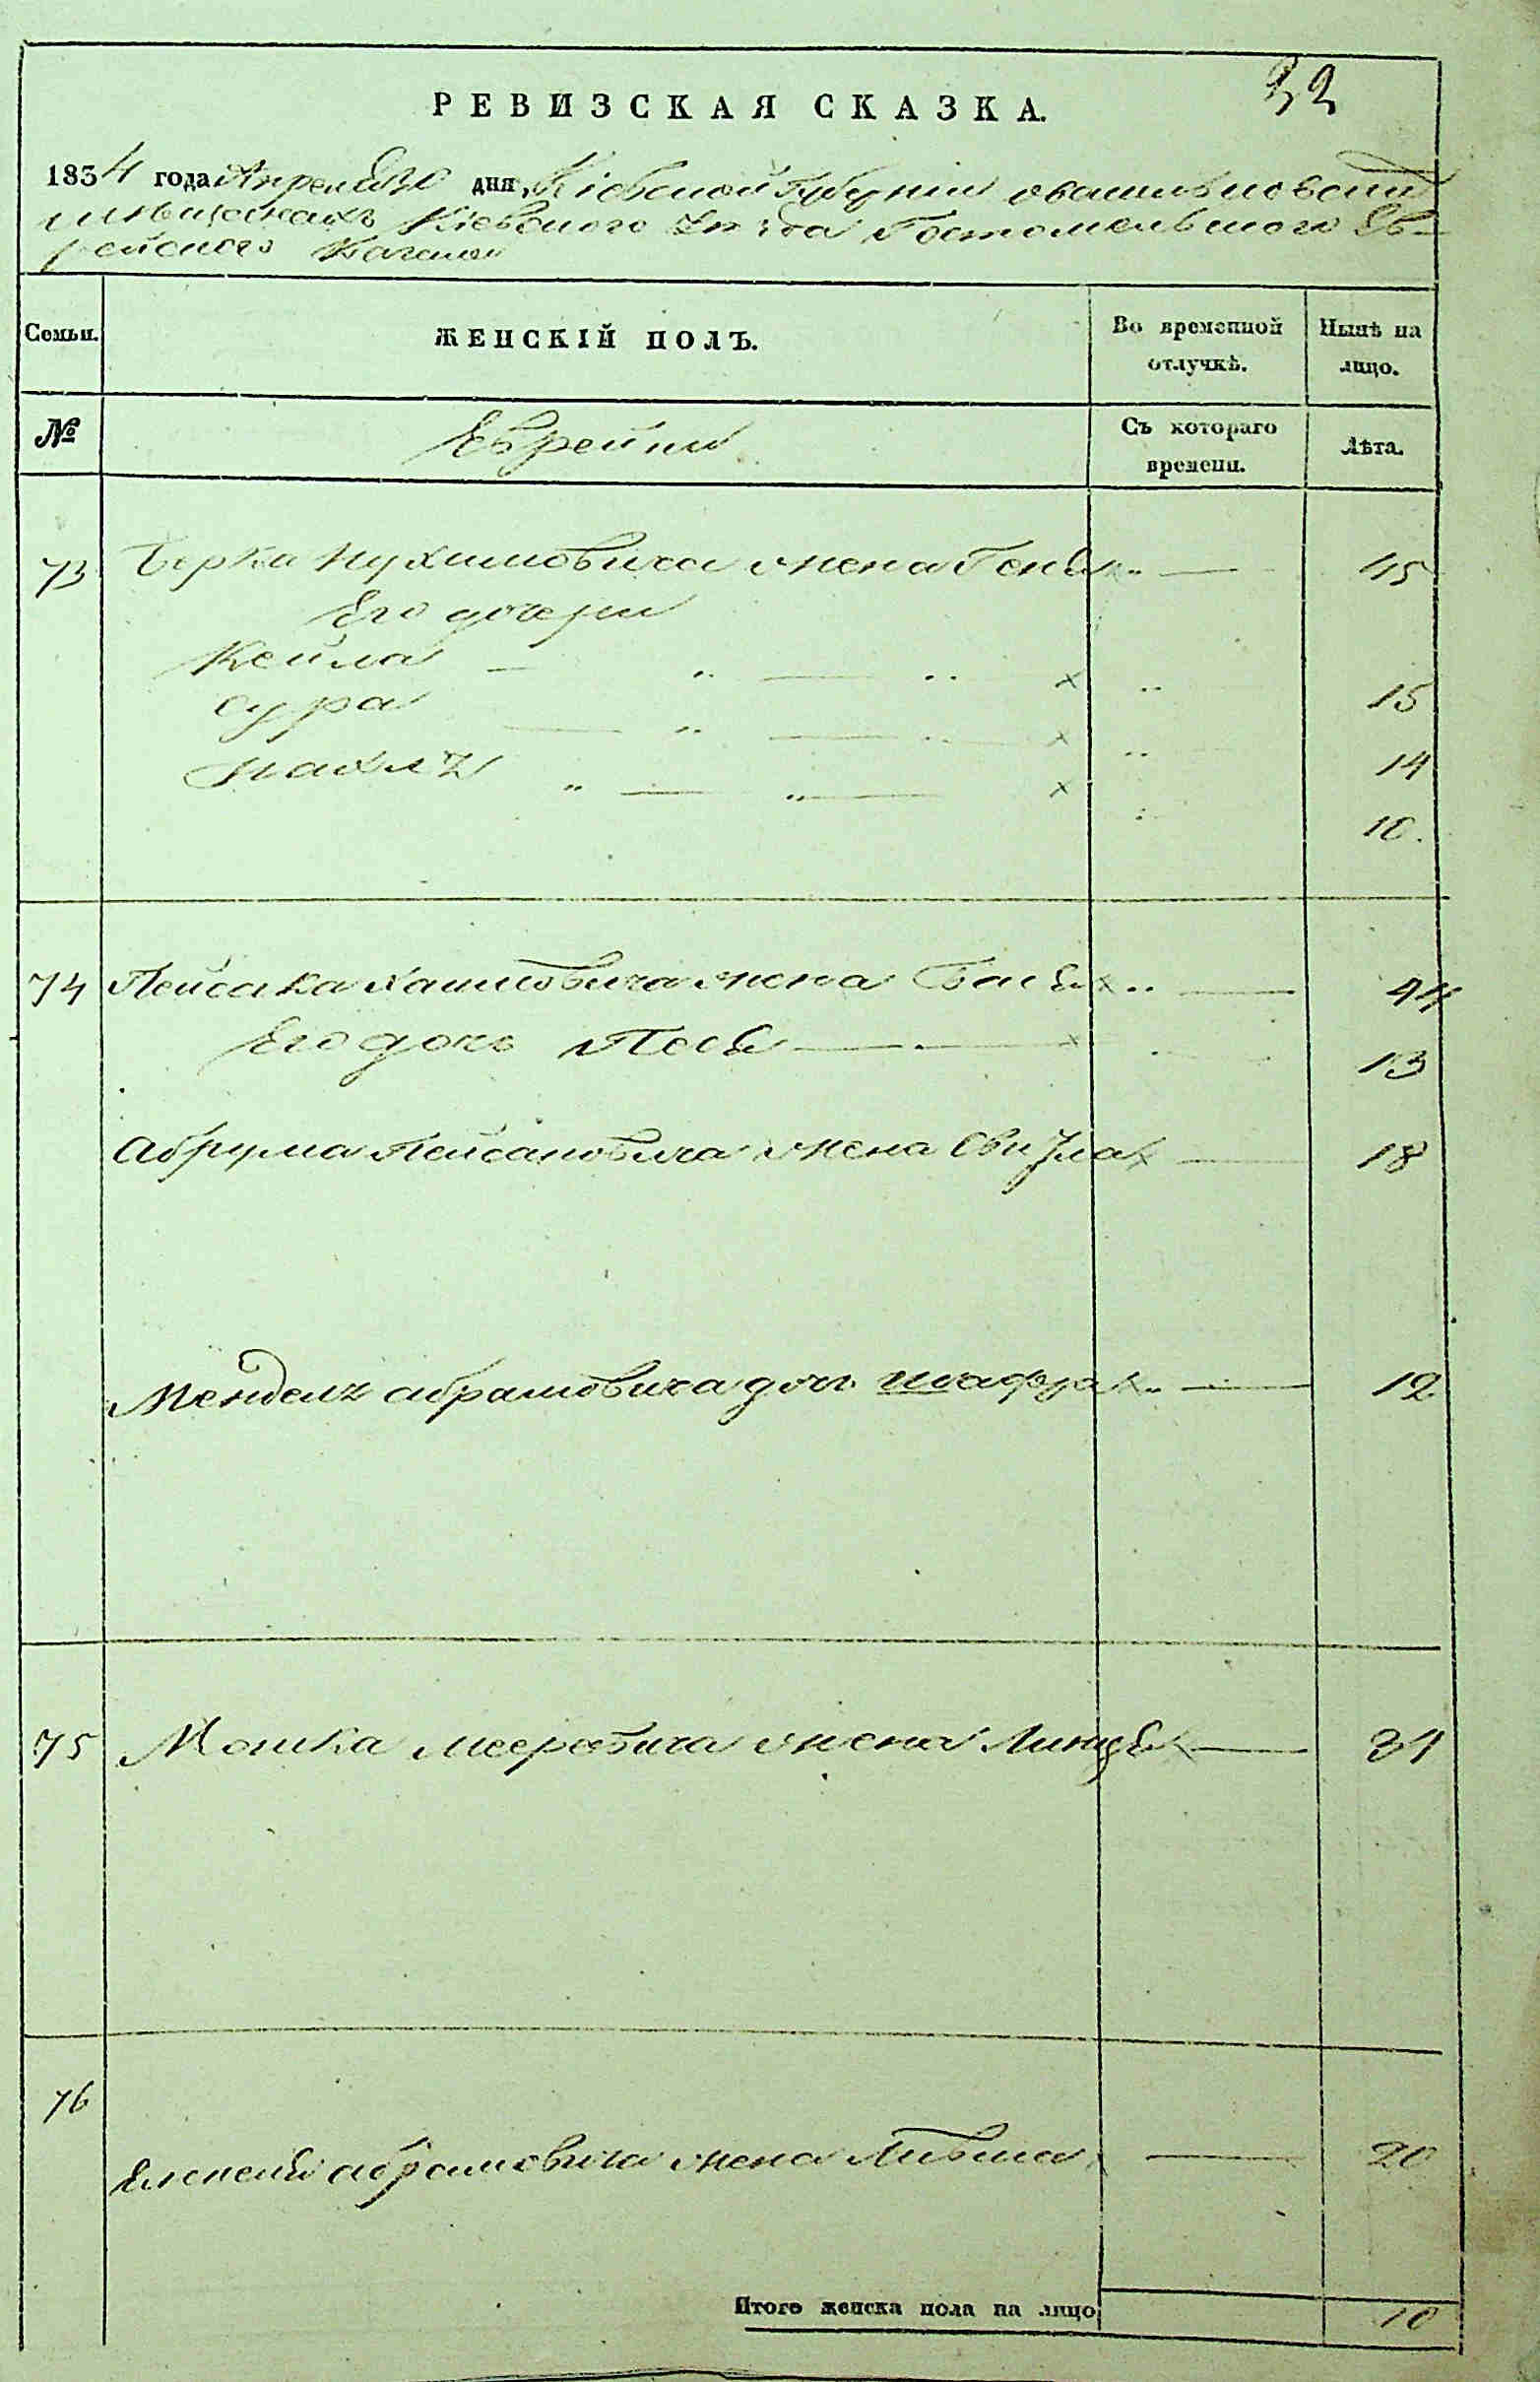 32
РЕВИЗСКАЯ СКАЗКА.
1834 года Апреля 30 дня, Кіевской Губерніи
мѣщанахъ Кіевского Уѣзда Гостомельского Ев-
рейского Кагала
Семьи.
ЖЕНСКІЙ ПОЛЪ.
Во временной отлучкѣ.
Нынѣ на лицо.
№
Еврейки
Съ котораго времени.
Лѣта.
73 Берка Нухимовича жена Геня 45
Его дочери
Кейла 15
Сура 14
10.
74 Пейсаха Хаимовича жена Бася 44
Его дочь Песя 13
Абрума Пейсаховича жена 18
Мендель Абрамовича дочь 12
75 Мошка Мееровича жена 31
76
Абрамовича жена Либша 20
Итого женска пола на лицо 10